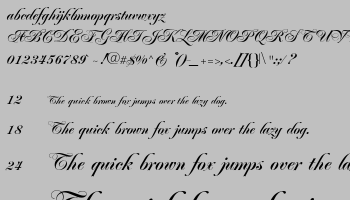 abcdefghijklmnopqrstuvwxyz
ABCDEFGHIJKLMNOPQRSTUV
0123456789
12 The quick brown fox jumps over the lazy dog.
18 The quick brown fox jumps over the lazy dog.
24 The quick brown fox jumps over the